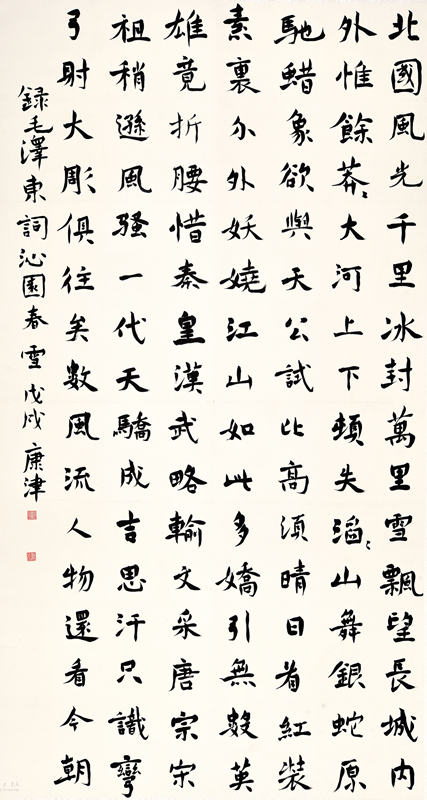 北國風光千里冰封萬里雪飄望長城内
外惟餘莽〻大河上下頓失滔〻山舞銀蛇原
馳蜡象欲與天公試比高須晴日看紅裝
素裹分外妖嬈江山如此多嬌引無數英
雄竟折腰惜秦皇漢武略輸文采唐宗宋
祖稍遜風騷一代天驕成吉思汗只識彎
弓射大彫俱往矣數風流人物還看今朝
録毛澤東詞沁園春雪戊戌康津